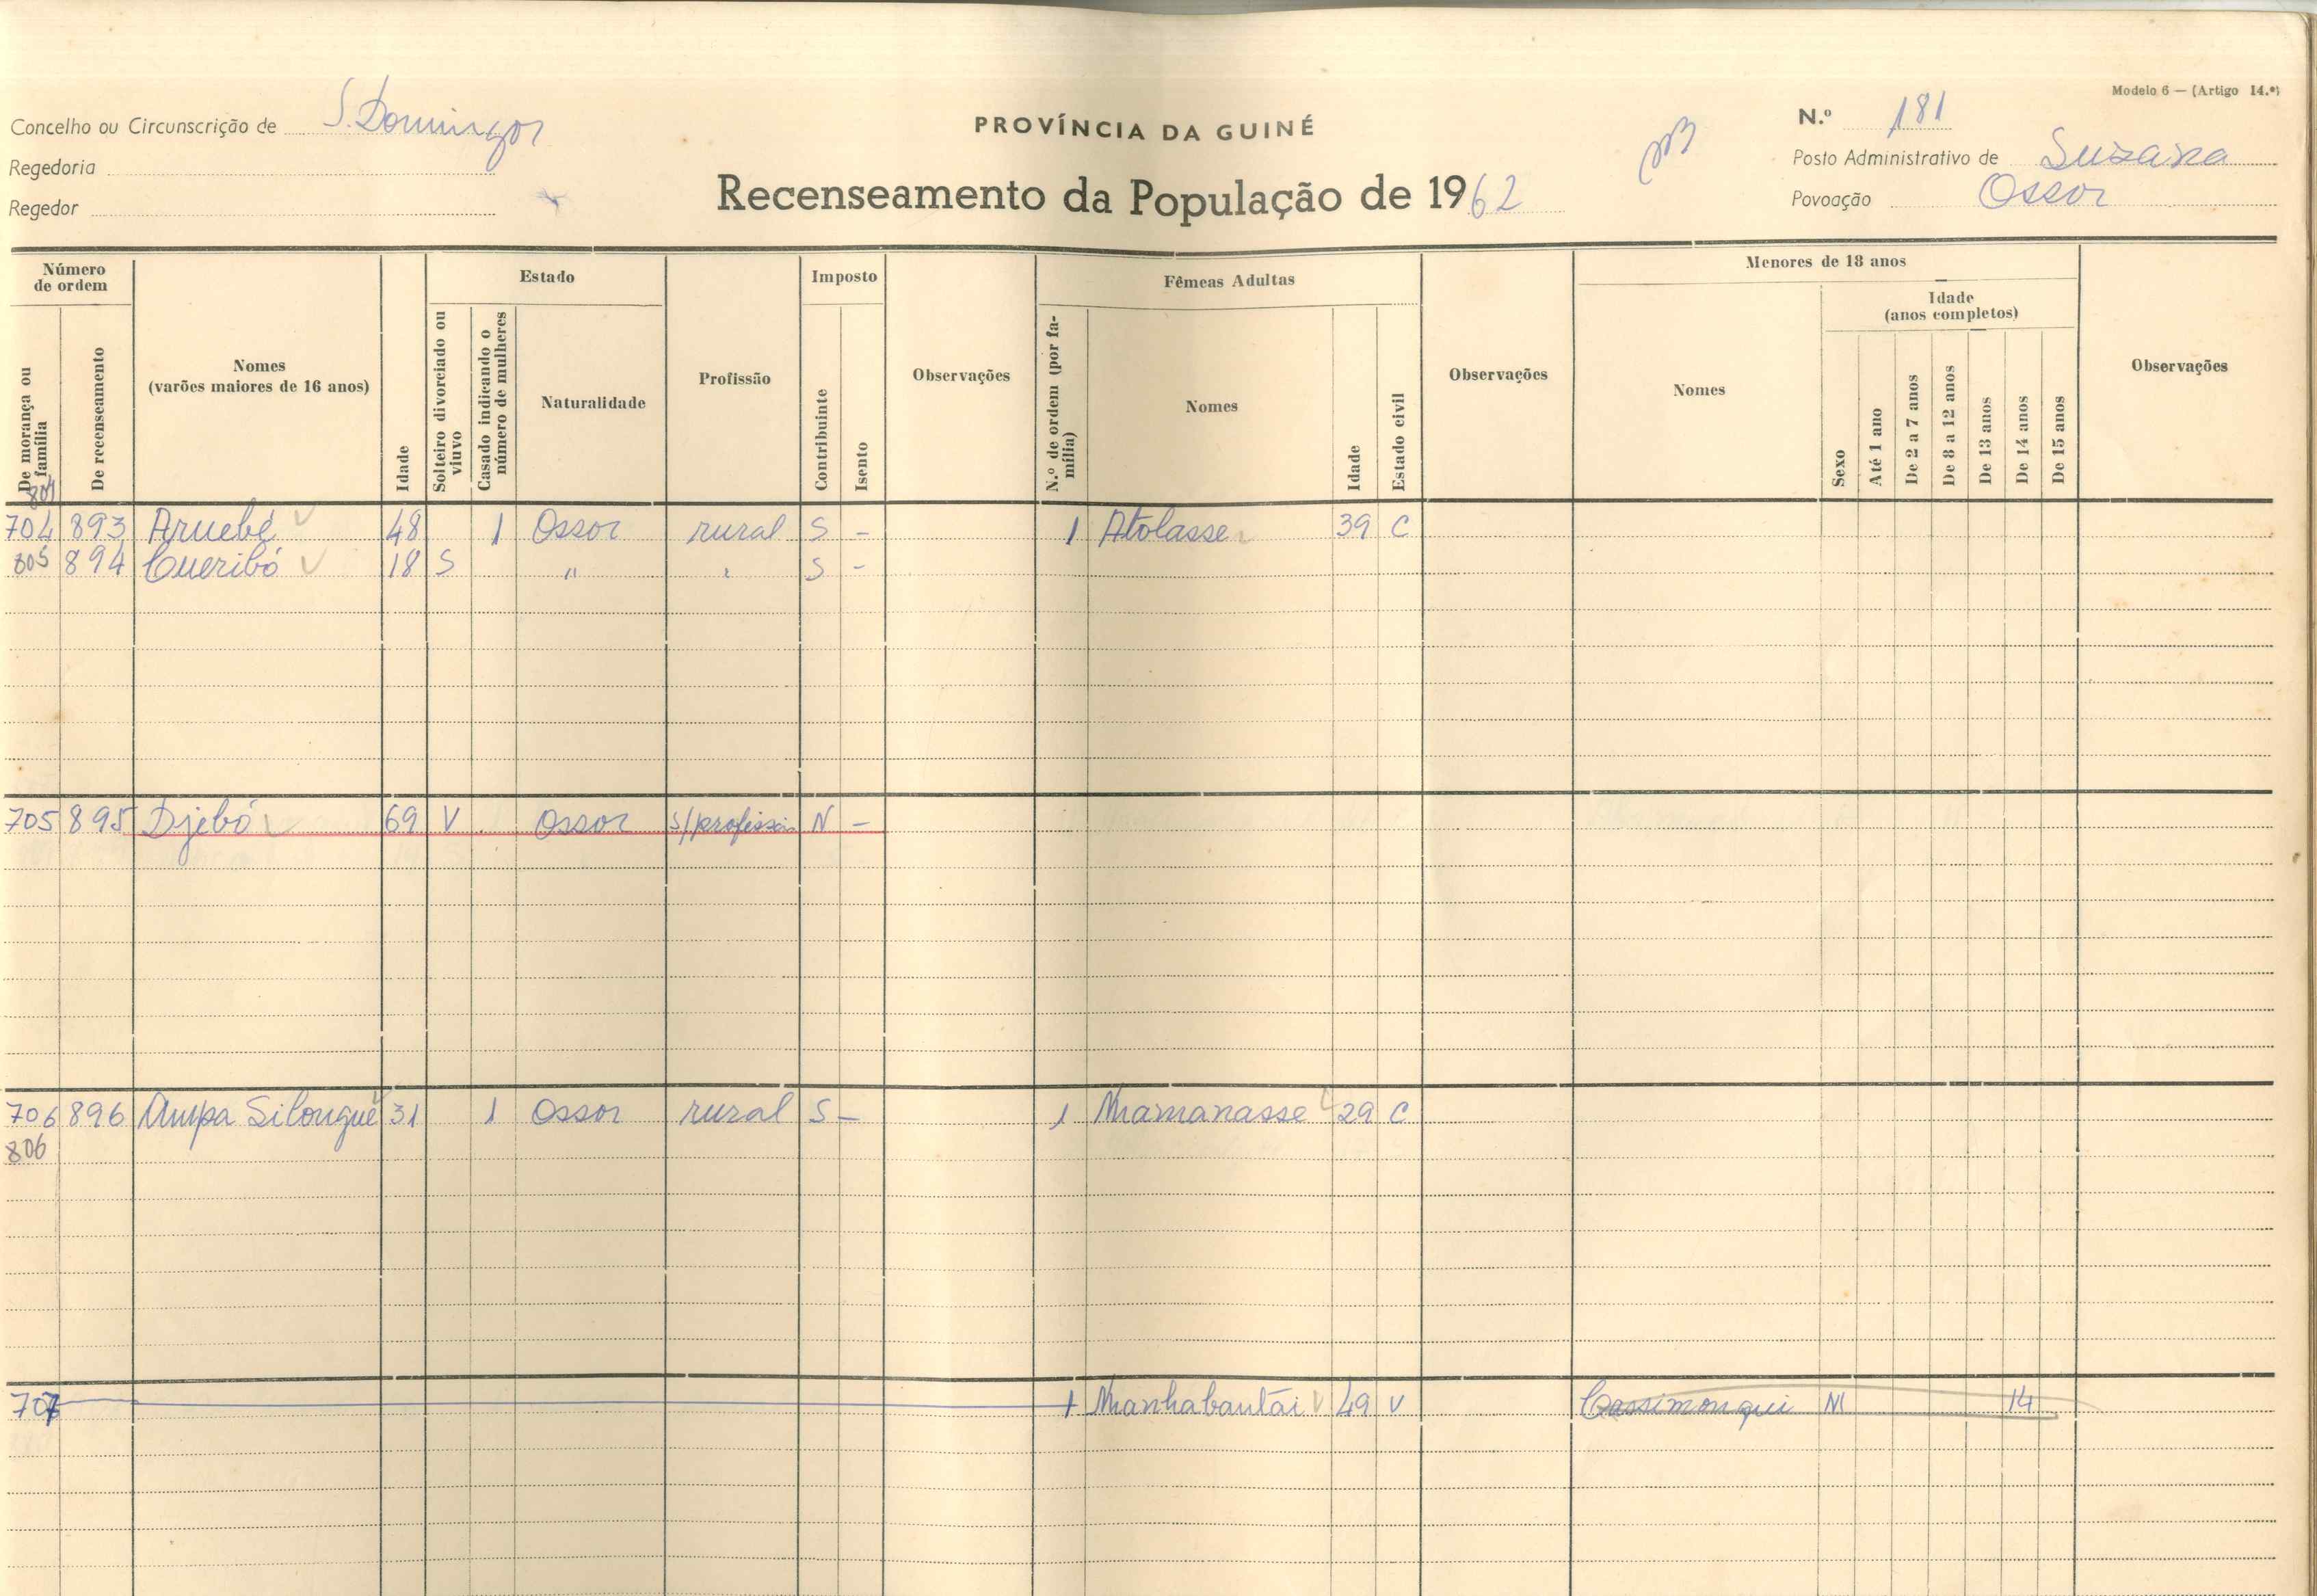 Modelo 6 — (Artigo 14.º)
Concelho ou Circunscrição de S. Domingos
PROVÍNCIA DA GUINÉ
N.º 181
Regedoria
Posto Administrativo de Suzana
Regedor
Recenseamento da População de 1962
Povoação Ossor
Número de ordem
De morança ou família
De recenseamento
Nomes
(varões maiores de 16 anos)
Idade
Estado
Solteiro divorciado ou viuvo
Casado indicando o número de mulheres
Naturalidade
Profissão
Imposto
Contribuinte
Isento
Observações
Fêmeas Adultas
N.º de ordem (por família)
Nomes
Idade
Estado civil
Observações
Menores de 18 anos
Nomes
Sexo
Idade
(anos completos)
Até 1 ano
De 2 a 7 anos
De 8 a 12 anos
De 13 anos
De 14 anos
De 15 anos
Observações
704 893 Aruebé 48 1 Ossor rural S - 1 Atolasse 39 C
805 894 Cueribó 18 S " " S -
705 895 Djebó 69 V Ossor s/profissão N -
706 896 Ampa Silongué 31 1 Ossor rural S - 1 Nhamanasse 29 C
806
707 1 Nhanhabantai 49 V Cassimonqui M 14